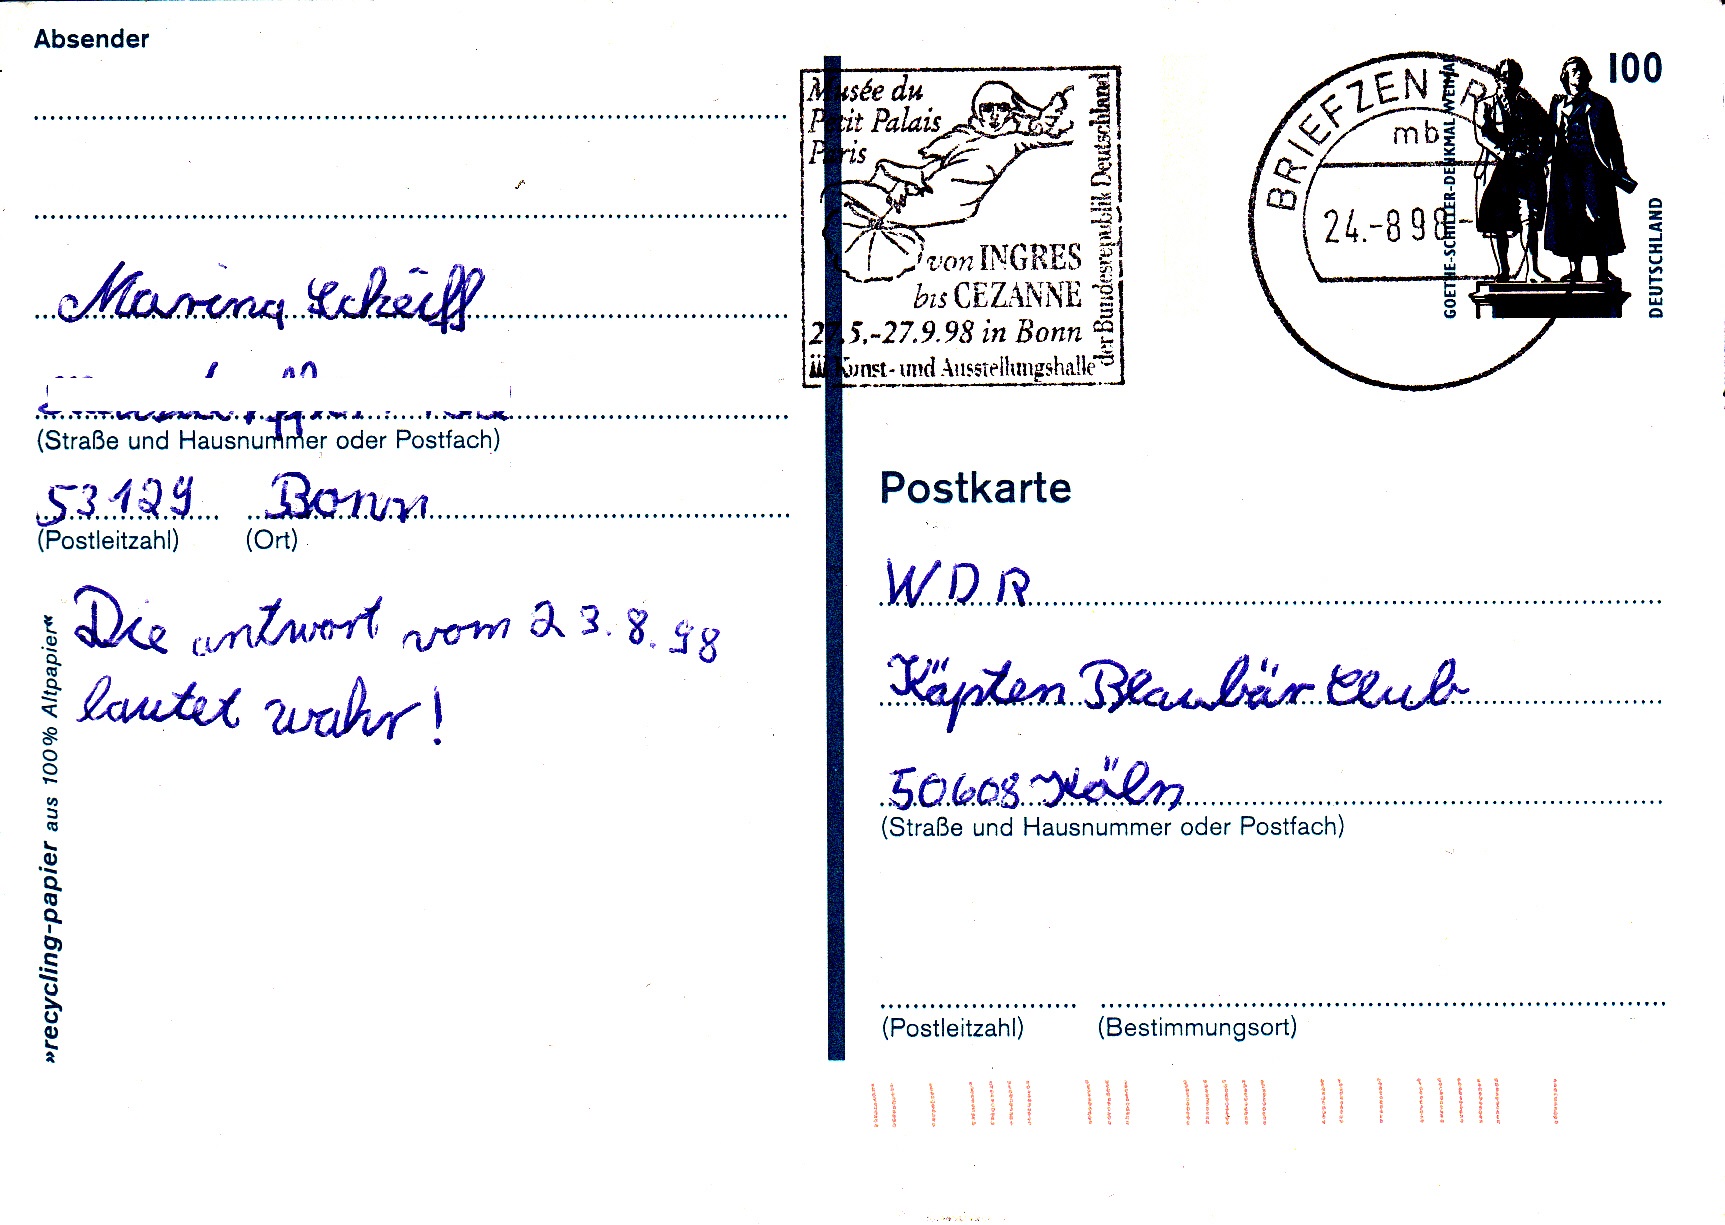 Absender
Marina Scheiff
(Straße und Hausnummer oder Postfach)
53129 Bonn
(Postleitzahl) (Ort)
Die antwort vom 23.8.98
lautet wahr!
»recycling-papier aus 100% Altpapier«
Musée du
Petit Palais
Paris
von INGRES
bis CEZANNE
27.5.-27.9.98 in Bonn
Kunst- und Ausstellungshalle
der Bundesrepublik Deutschland
BRIEFZENTR
mb
24.-8 98-
100
GOETHE-SCHILLER-DENKMAL WEIMAR
DEUTSCHLAND
Postkarte
WDR
Käpten Blaubär Club
50608 Köln
(Straße und Hausnummer oder Postfach)
(Postleitzahl) (Bestimmungsort)